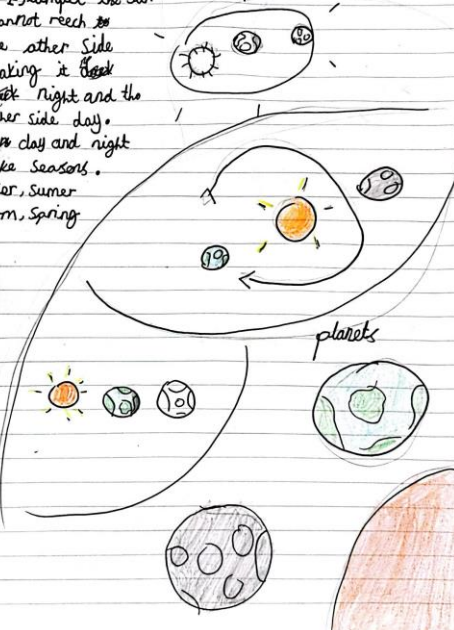 cannot reech to
e other side
aking it
night and the
her side day.
day and night
ke seasons.
er, sumer
m, spring
planets